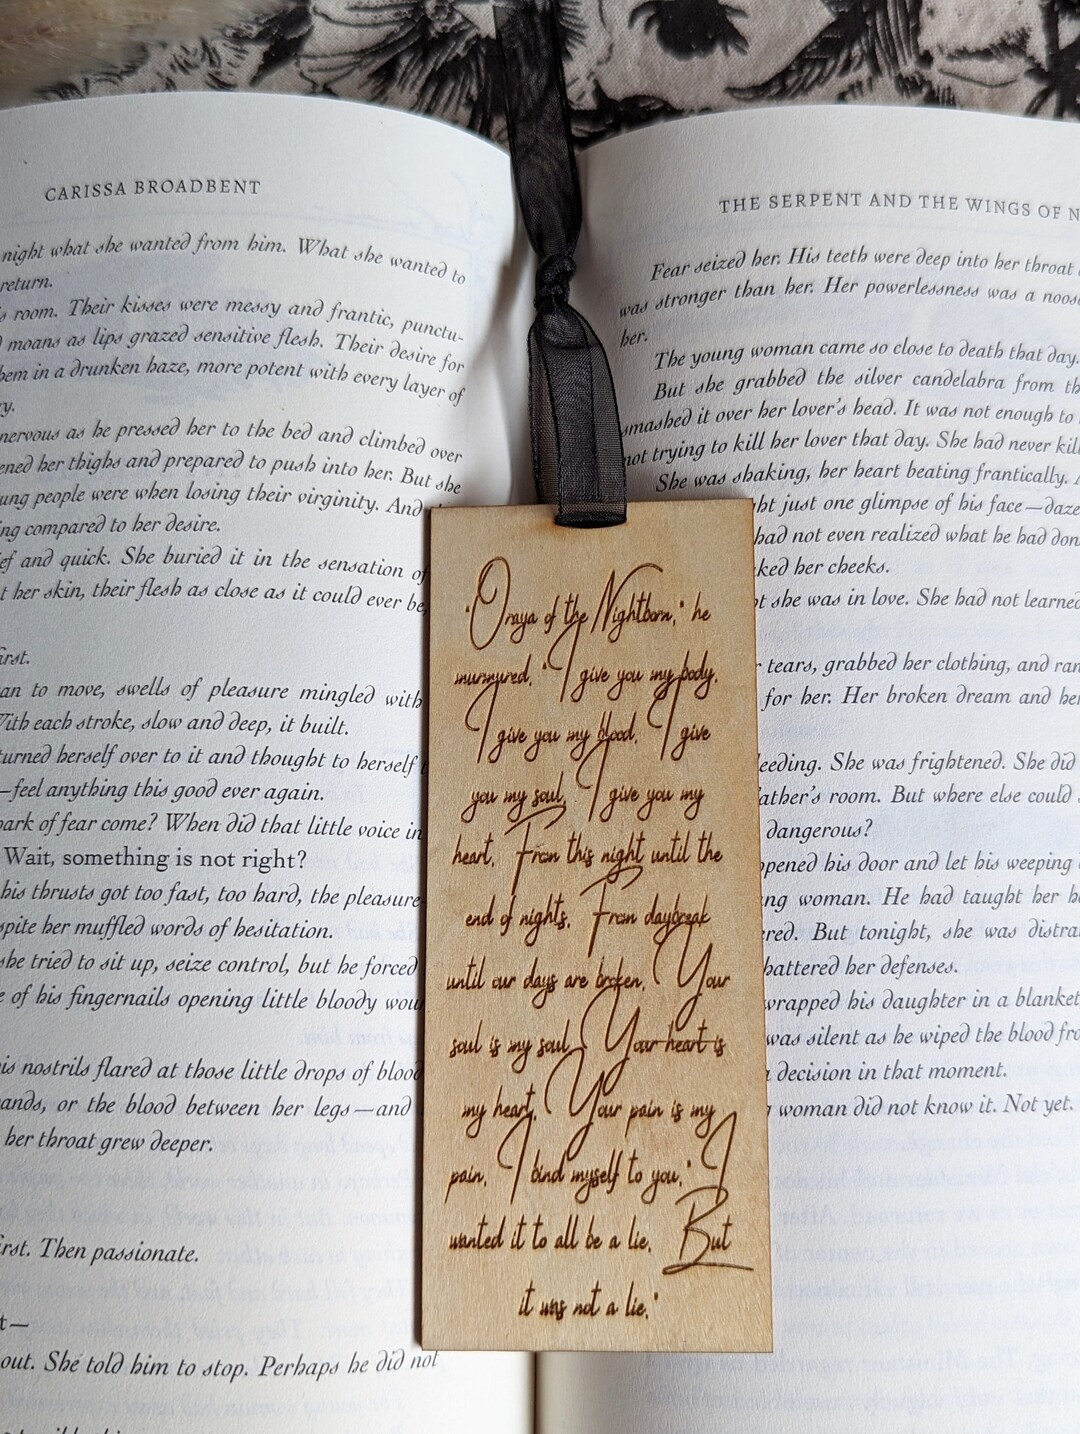 CARISSA BROADBENT
night what she wanted from him. What she wanted to
return.
room. Their kisses were messy and frantic, punctu-
moans as lips grazed sensitive flesh. Their desire for
hem in a drunken haze, more potent with every layer of
nervous as he pressed her to the bed and climbed over
ened her thighs and prepared to push into her. But she
ung people were when losing their virginity. And
ing compared to her desire.
ef and quick. She buried it in the sensation of
t her skin, their flesh as close as it could ever be,
first.
an to move, swells of pleasure mingled with
With each stroke, slow and deep, it built.
turned herself over to it and thought to herself
—feel anything this good ever again.
park of fear come? When did that little voice in
Wait, something is not right?
his thrusts got too fast, too hard, the pleasure-
spite her muffled words of hesitation.
she tried to sit up, seize control, but he forced
e of his fingernails opening little bloody wou
is nostrils flared at those little drops of blood
ands, or the blood between her legs—and
her throat grew deeper.
irst. Then passionate.
t—
out. She told him to stop. Perhaps he did not
THE SERPENT AND THE WINGS OF N
Fear seized her. His teeth were deep into her throat
was stronger than her. Her powerlessness was a noose
her.
The young woman came so close to death that day.
But she grabbed the silver candelabra from th
smashed it over her lover's head. It was not enough to
not trying to kill her lover that day. She had never kill
She was shaking, her heart beating frantically.
ht just one glimpse of his face—daze
had not even realized what he had don
ked her cheeks.
t she was in love. She had not learned
tears, grabbed her clothing, and ran
for her. Her broken dream and her
eeding. She was frightened. She did
ather's room. But where else could
dangerous?
opened his door and let his weeping
ng woman. He had taught her h
red. But tonight, she was distra
hattered her defenses.
wrapped his daughter in a blanket
was silent as he wiped the blood fro
decision in that moment.
woman did not know it. Not yet.
"Oraya of the Nightborn," he
murmured, "I give you my body.
I give you my blood. I give
you my soul. I give you my
heart. From this night until the
end of nights. From daybreak
until our days are broken. Your
soul is my soul. Your heart is
my heart. Your pain is my
pain. I bind myself to you." I
wanted it to all be a lie. But
it was not a lie."